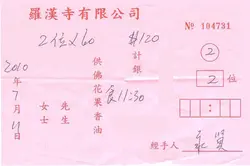 羅漢寺有限公司
No 104731
2位x60 $120
計銀
②
2位
供佛花果香油
食11:30
先生
女士
2010年7月4日
經手人